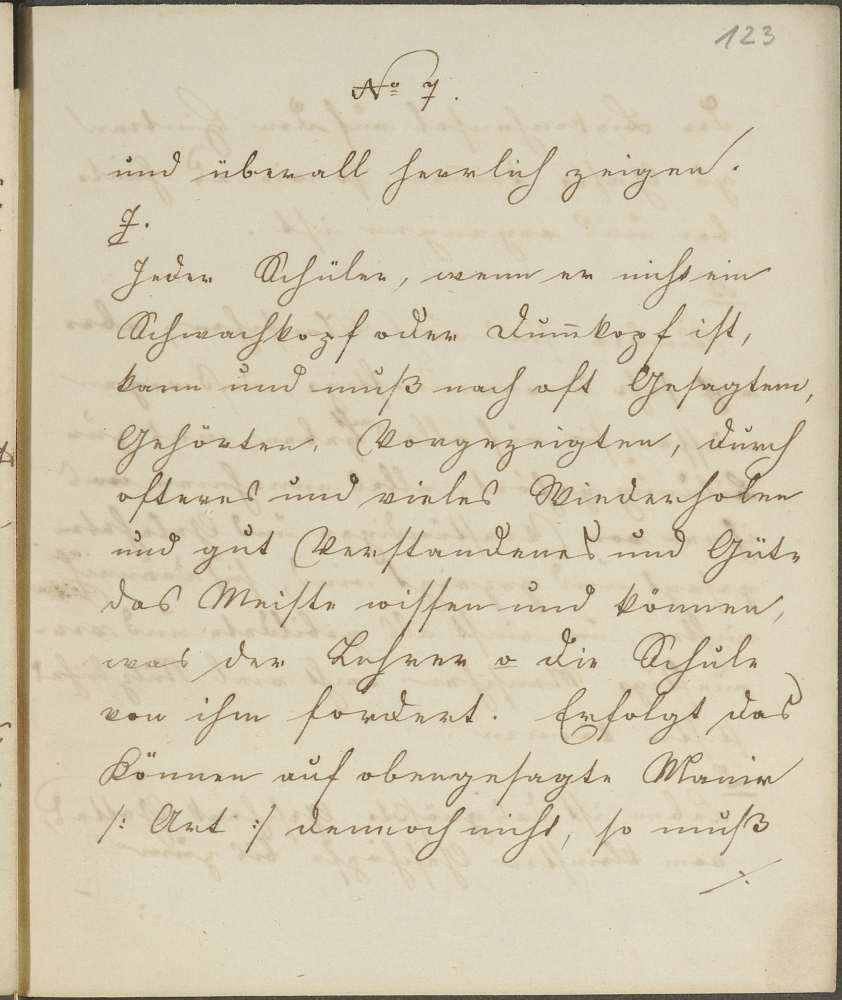 123
No 7.
und überall herrlich zeigen.
7.
Jeder Schüler, wenn er nicht ein
Schwachkopf oder Dum̅kopf ist,
kann und muß nach oft Gesagtem,
Gehörten, Vorgezeigten, durch
ofteres und vieles Wiederholen
und gut Verstandenes und Güte
das Meiste wissen und können,
was der Lehrer o die Schule
von ihm fordert. Erfolgt das
Können auf obengesagte Manir
/: Art :/ dennoch nicht, so muß
./.